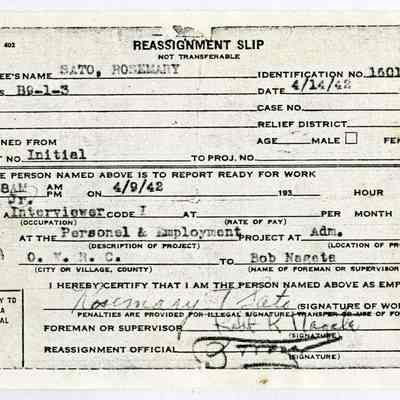 402
REASSIGNMENT SLIP
NOT TRANSFERABLE
EE'S NAME SATO, ROSEMARY IDENTIFICATION NO. 1601
S B9-1-3 DATE 4/14/42
CASE NO.
RELIEF DISTRICT
NED FROM AGE MALE FE
T NO. Initial TO PROJ. NO.
E PERSON NAMED ABOVE IS TO REPORT READY FOR WORK
8AM AM PM ON 4/9/42 193 HOUR
Jr.
A Interviewer CODE I AT PER MONTH
(OCCUPATION) (RATE OF PAY)
AT THE Personel & Employment PROJECT AT Adm.
(DESCRIPTION OF PROJECT) (LOCATION OF PR
O. W. R. C. TO Bob Nageta
(CITY OR VILLAGE, COUNTY) (NAME OF FOREMAN OR SUPERVISOR
I HEREBY CERTIFY THAT I AM THE PERSON NAMED ABOVE AS EMP
Rosemary Sato (SIGNATURE OF WOR
PENALTIES ARE PROVIDED FOR ILLEGAL SIGNATURE, TRANSFER OR USE OF FO
Y TO
FOREMAN OR SUPERVISOR
A
(SIGNATURE)
AL
REASSIGNMENT OFFICIAL
(SIGNATURE)